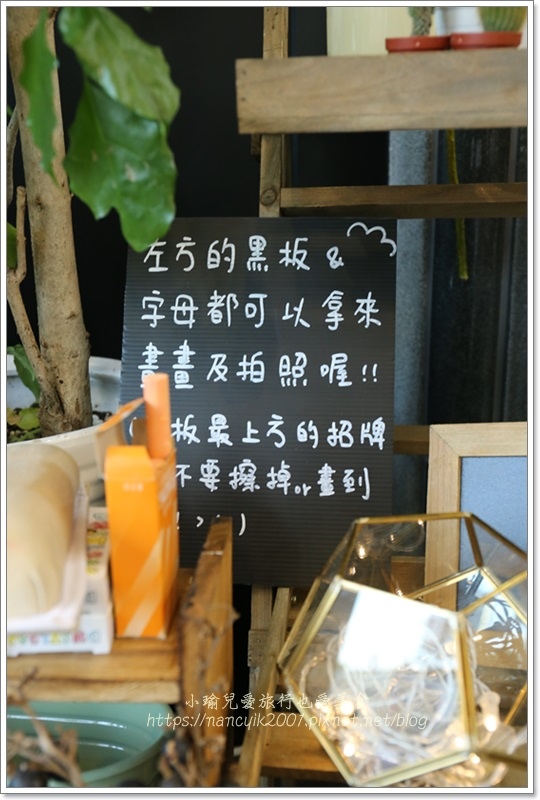 左方的黑板&
字母都可以拿來
畫畫及拍照喔!!
板最上方的招牌
不要擦掉or畫到
小瑜兒愛旅行也愛美食
https://nancyik2007.pixnet.net/blog